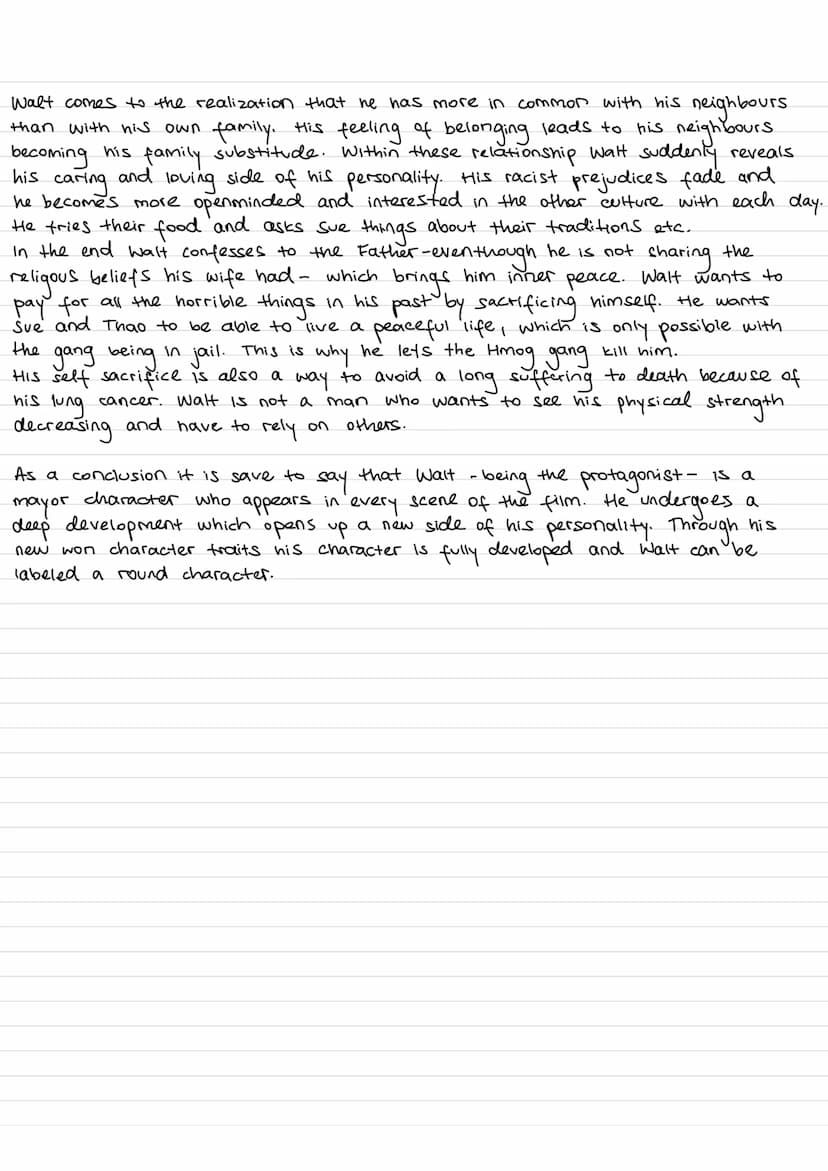 Walt comes to the realization that he has more in common with his neighbours
than with his own family. His feeling of belonging leads to his neighbours
becoming his family substitude. Within these relationship Walt suddenly reveals
his caring and loving side of his personality. His racist prejudices fade and
he becomes more openminded and interested in the other culture with each day.
He tries their food and asks Sue things about their traditions etc.
In the end Walt confesses to the Father -eventhough he is not sharing the
religous beliefs his wife had- which brings him inner peace. Walt wants to
pay for all the horrible things in his past by sacrificing himself. He wants
Sue and Thao to be able to live a peaceful life, which is only possible with
the gang being in jail. This is why he lets the Hmog gang kill him.
His self sacrifice is also a way to avoid a long suffering to death because of
his lung cancer. Walt is not a man who wants to see his physical strength
decreasing and have to rely on others.
As a conclusion it is save to say that Walt -being the protagonist- is a
mayor character who appears in every scene of the film. He undergoes a
deep development which opens up a new side of his personality. Through his
new won character traits his character is fully developed and Walt can be
labeled a round character.